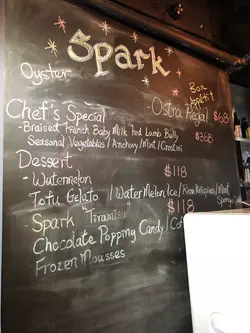 Spark
Oyster
Bon
Appétit
- Ostra Regal $68
Chef's Special
- Braised French Baby Milk Fed Lamb Belly $368
Seasonal Vegetables / Anchovy / Mint / Crostini
Dessert
- Watermelon $118
Tofu Gelato / Water Melon Ice / Rice Krispies / Mint
Sponge
- Spark "Tiramisu" $118
Chocolate Popping Candy /
Frozen Mousses